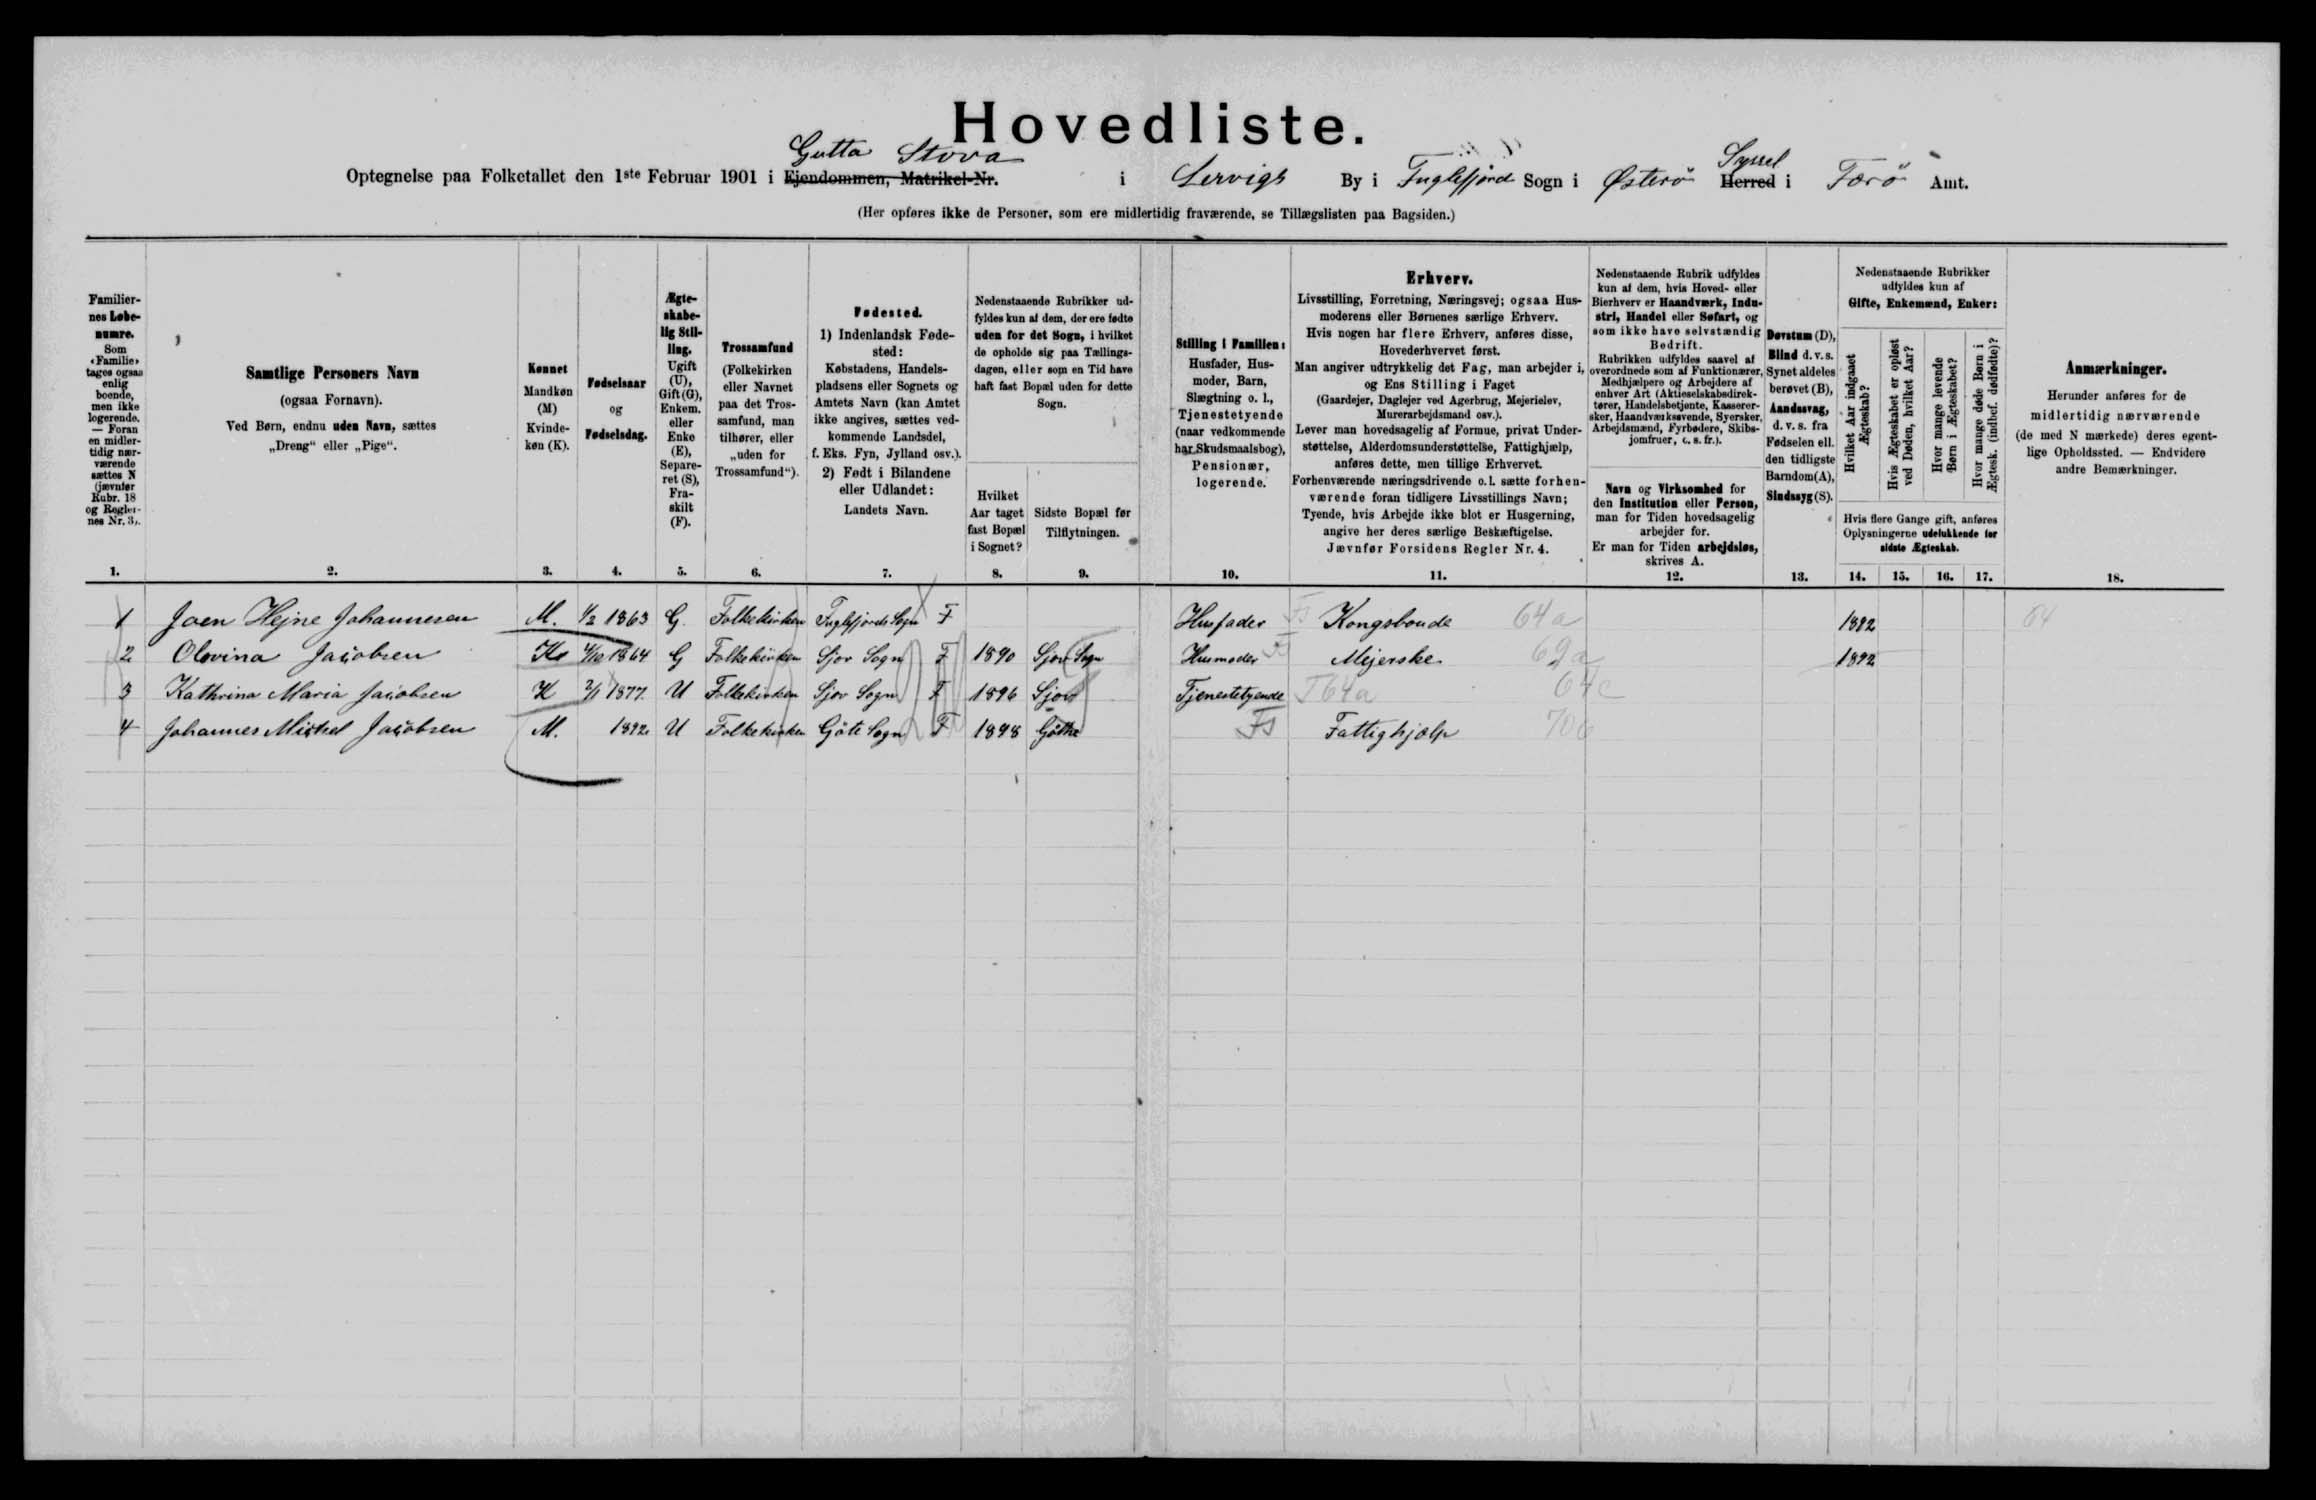 Hovedliste.
Gutta Stova
Optegnelse paa Folketallet den 1ste Februar 1901 i Ejendommen, Matrikel-Nr. i Lervigs By i Fuglefjord Sogn i Østerö Herred Syssel i Færö Amt.
(Her opføres ikke de Personer, som ere midlertidig fraværende, se Tillægslisten paa Bagsiden.)
Familier-
nes Løbe-
numre.
Som
«Familie»
tages ogsaa
enlig
boende,
men ikke
logerende.
— Foran
en midler-
tidig nær-
værende
sættes N
(jævnfør
Rubr. 18
og Regler-
nes Nr. 3).
1.
Samtlige Personers Navn
(ogsaa Fornavn).
Ved Børn, endnu uden Navn, sættes
„Dreng“ eller „Pige“.
2.
Kønnet
Mandkøn
(M)
Kvinde-
køn (K).
3.
Fødselsaar
og
Fødselsdag.
4.
Ægte-
skabe-
lig Stil-
ling.
Ugift
(U),
Gift (G),
Enkem.
eller
Enke
(E),
Separe-
ret (S),
Fra-
skilt
(F).
5.
Trossamfund
(Folkekirken
eller Navnet
paa det Tros-
samfund, man
tilhører, eller
„uden for
Trossamfund“).
6.
Fødested.
1) Indenlandsk Føde-
sted:
Købstadens, Handels-
pladsens eller Sognets og
Amtets Navn (kan Amtet
ikke angives, sættes ved-
kommende Landsdel,
f. Eks. Fyn, Jylland osv.).
2) Født i Bilandene
eller Udlandet:
Landets Navn.
7.
Nedenstaaende Rubrikker ud-
fyldes kun af dem, der ere fødte
uden for det Sogn, i hvilket
de opholde sig paa Tællings-
dagen, eller som en Tid have
haft fast Bopæl uden for dette
Sogn.
Hvilket
Aar taget
fast Bopæl
i Sognet?
8.
Sidste Bopæl før
Tilflytningen.
9.
Stilling i Familien:
Husfader, Hus-
moder, Barn,
Slægtning o. l.,
Tjenestetyende
(naar vedkommende
har Skudsmaalsbog),
Pensionær,
logerende.
10.
Erhverv.
Livsstilling, Forretning, Næringsvej; ogsaa Hus-
moderens eller Børnenes særlige Erhverv.
Hvis nogen har flere Erhverv, anføres disse,
Hovederhvervet først.
Man angiver udtrykkelig det Fag, man arbejder i,
og Ens Stilling i Faget
(Gaardejer, Daglejer ved Agerbrug, Mejerielev,
Murerarbejdsmand osv.).
Lever man hovedsagelig af Formue, privat Under-
støttelse, Alderdomsunderstøttelse, Fattighjælp,
anføres dette, men tillige Erhvervet.
Forhenværende næringsdrivende o. l. sætte forhen-
værende foran tidligere Livsstillings Navn;
Tyende, hvis Arbejde ikke blot er Husgerning,
angive her deres særlige Beskæftigelse.
Jævnfør Forsidens Regler Nr. 4.
11.
Nedenstaaende Rubrik udfyldes
kun af dem, hvis Hoved- eller
Bierhverv er Haandværk, Indu-
stri, Handel eller Søfart, og
som ikke have selvstændig
Bedrift.
Rubrikken udfyldes saavel af
overordnede som af Funktionærer,
Medhjælpere og Arbejdere af
enhver Art (Aktieselskabsdirek-
tører, Handelsbetjente, Kasserer-
sker, Haandværkssvende, Syersker,
Arbejdsmænd, Fyrbødere, Skibs-
jomfruer, o. s. fr.).
Navn og Virksomhed for
den Institution eller Person,
man for Tiden hovedsagelig
arbejder for.
Er man for Tiden arbejdsløs,
skrives A.
12.
Døvstum (D),
Blind d. v. s.
Synet aldeles
berøvet (B),
Aandssvag,
d. v. s. fra
Fødselen ell.
den tidligste
Barndom (A),
Sindssyg (S).
13.
Nedenstaaende Rubrikker
udfyldes kun af
Gifte, Enkemænd, Enker:
Hvilket Aar indgaaet
Ægteskab?
Hvis Ægteskabet er opløst
ved Døden, hvilket Aar?
Hvor mange levende
Børn i Ægteskabet?
Hvor mange døde Børn i
Ægtesk. (indbef. dødfødte)?
Hvis flere Gange gift, anføres
Oplysningerne udelukkende for
sidste Ægteskab.
14. 15. 16. 17.
Anmærkninger.
Herunder anføres for de
midlertidig nærværende
(de med N mærkede) deres egent-
lige Opholdssted. — Endvidere
andre Bemærkninger.
18.
1 Joen Hejne Johannesen M. 1/2 1863 G. Folkekirken Fuglefjords Sogn F Husfader Kongsbonde 64a 1892
2 Olovina Jacobsen K 1864 G Folkekirken Sjov Sogn F 1890 Sjov Sogn Husmoder Mejerske 69a 1892
3 Kathrina Maria Jacobsen K 2/1 1877. U Folkekirken Sjov Sogn F 1896 Sjov Tjenestetyende T64a 64c
4 Johannes Michel Jacobsen M. 1892 U Folkekirken Göte Sogn F 1898 Göthe Fs Fattighjælp